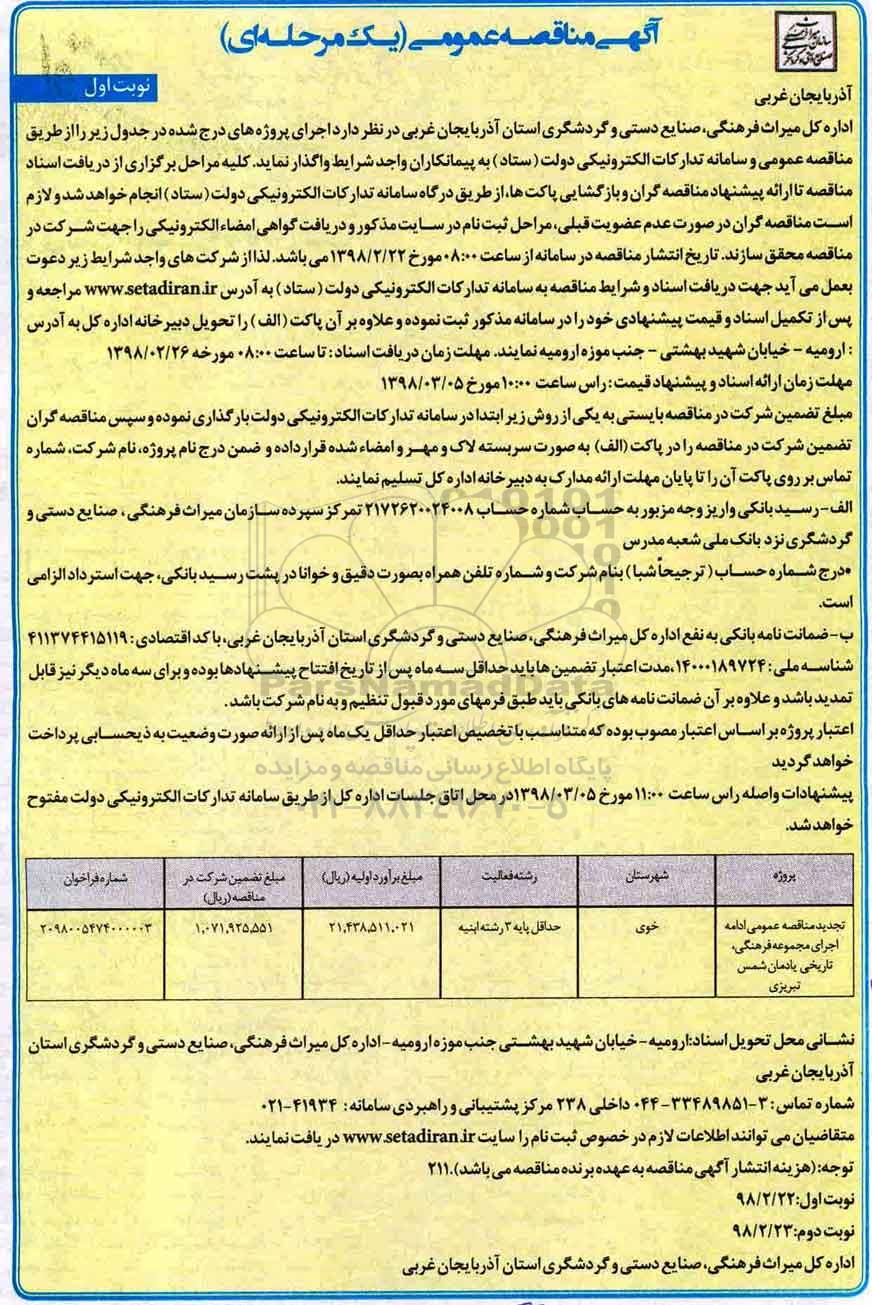 آگهی مناقصه عمومی (یک مرحله‌ای)
نوبت اول
آذربایجان غربی
اداره کل میراث فرهنگی، صنایع دستی و گردشگری استان آذربایجان غربی در نظر دارد اجرای پروژه های درج شده در جدول زیر را از طریق
مناقصه عمومی و سامانه تدارکات الکترونیکی دولت (ستاد) به پیمانکاران واجد شرایط واگذار نماید. کلیه مراحل برگزاری از دریافت اسناد
مناقصه تا ارائه پیشنهاد مناقصه گران و بازگشایی پاکت ها، از طریق درگاه سامانه تدارکات الکترونیکی دولت (ستاد) انجام خواهد شد و لازم
است مناقصه گران در صورت عدم عضویت قبلی، مراحل ثبت نام در سایت مذکور و دریافت گواهی امضاء الکترونیکی را جهت شرکت در
مناقصه محقق سازند. تاریخ انتشار مناقصه در سامانه از ساعت ۰۸:۰۰ مورخ ۱۳۹۸/۲/۲۲ می باشد. لذا از شرکت های واجد شرایط زیر دعوت
بعمل می آید جهت دریافت اسناد و شرایط مناقصه به سامانه تدارکات الکترونیکی دولت (ستاد) به آدرس www.setadiran.ir مراجعه و
پس از تکمیل اسناد و قیمت پیشنهادی خود را در سامانه مذکور ثبت نموده و علاوه بر آن پاکت (الف) را تحویل دبیرخانه اداره کل به آدرس
: ارومیه - خیابان شهید بهشتی - جنب موزه ارومیه نمایند. مهلت زمان دریافت اسناد : تا ساعت ۰۸:۰۰ مورخه ۱۳۹۸/۰۲/۲۶
مهلت زمان ارائه اسناد و پیشنهاد قیمت : راس ساعت ۱۰:۰۰ مورخ ۱۳۹۸/۰۳/۰۵
مبلغ تضمین شرکت در مناقصه بایستی به یکی از روش زیر ابتدا در سامانه تدارکات الکترونیکی دولت بارگذاری نموده و سپس مناقصه گران
تضمین شرکت در مناقصه را در پاکت (الف) به صورت سربسته لاک و مهر و امضاء شده قرار داده و ضمن درج نام پروژه، نام شرکت، شماره
تماس بر روی پاکت آن را تا پایان مهلت ارائه مدارک به دبیرخانه اداره کل تسلیم نمایند.
الف- رسید بانکی واریز وجه مزبور به حساب شماره حساب ۲۱۷۲۶۲۰۰۲۴۰۰۸ تمرکز سپرده سازمان میراث فرهنگی، صنایع دستی و
گردشگری نزد بانک ملی شعبه مدرس
•درج شماره حساب (ترجیحاً شبا) بنام شرکت و شماره تلفن همراه بصورت دقیق و خوانا در پشت رسید بانکی، جهت استرداد الزامی
است.
ب- ضمانت نامه بانکی به نفع اداره کل میراث فرهنگی، صنایع دستی و گردشگری استان آذربایجان غربی، با کد اقتصادی : ۴۱۱۳۷۴۴۱۵۱۱۹
شناسه ملی : ۱۴۰۰۰۱۸۹۷۲۴،مدت اعتبار تضمین ها باید حداقل سه ماه پس از تاریخ افتتاح پیشنهادها بوده و برای سه ماه دیگر نیز قابل
تمدید باشد و علاوه بر آن ضمانت نامه های بانکی باید طبق فرمهای مورد قبول تنظیم و به نام شرکت باشد.
اعتبار پروژه بر اساس اعتبار مصوب بوده که متناسب با تخصیص اعتبار حداقل یک ماه پس از ارائه صورت وضعیت به ذیحسابی پرداخت
خواهد گردید
پایگاه اطلاع رسانی مناقصه و مزایده
پیشنهادات واصله راس ساعت ۱۱:۰۰ مورخ ۱۳۹۸/۰۳/۰۵ در محل اتاق جلسات اداره کل از طریق سامانه تدارکات الکترونیکی دولت مفتوح
خواهد شد.
پروژه شهرستان رشته فعالیت مبلغ برآورد اولیه (ریال) مبلغ تضمین شرکت در مناقصه (ریال) شماره فراخوان
تجدید مناقصه عمومی ادامه خوی حداقل پایه ۳ رشته ابنیه ۲۱,۴۳۸,۵۱۱,۰۲۱ ۱,۰۷۱,۹۲۵,۵۵۱ ۲۰۹۸۰۰۵۴۷۴۰۰۰۰۰۳
اجرای مجموعه فرهنگی،
تاریخی یادمان شمس
تبریزی
نشانی محل تحویل اسناد:ارومیه - خیابان شهید بهشتی جنب موزه ارومیه - اداره کل میراث فرهنگی، صنایع دستی و گردشگری استان
آذربایجان غربی
شماره تماس : ۳-۳۳۴۸۹۸۵۱-۰۴۴ داخلی ۲۳۸ مرکز پشتیبانی و راهبردی سامانه : ۴۱۹۳۴-۰۲۱
متقاضیان می توانند اطلاعات لازم در خصوص ثبت نام را سایت www.setadiran.ir دریافت نمایند.
توجه: (هزینه انتشار آگهی مناقصه به عهده برنده مناقصه می باشد).۲۱۱
نوبت اول: ۹۸/۲/۲۲
نوبت دوم: ۹۸/۲/۲۳
اداره کل میراث فرهنگی، صنایع دستی و گردشگری استان آذربایجان غربی